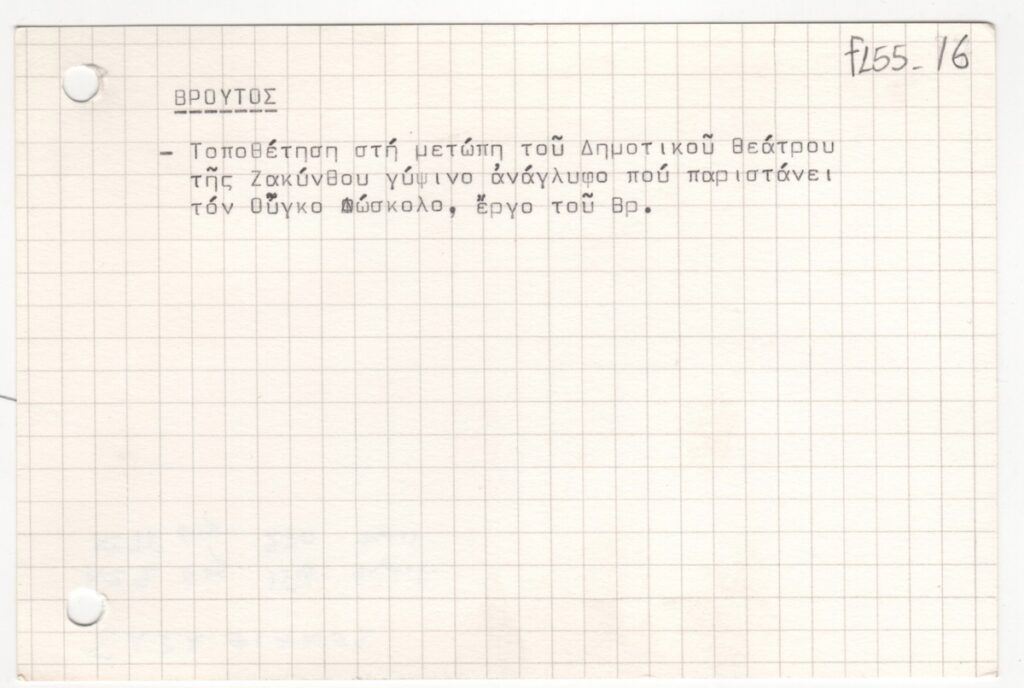 f255_ 16
ΒΡΟΥΤΟΣ
- Τοποθέτηση στή μετώπη τοῦ Δημοτικοῦ θεάτρου
τῆς Ζακύνθου γύψινο ἀνάγλυφο πού παριστάνει
τόν Οὖγκο Φώσκολο, ἔργο τοῦ Βρ.